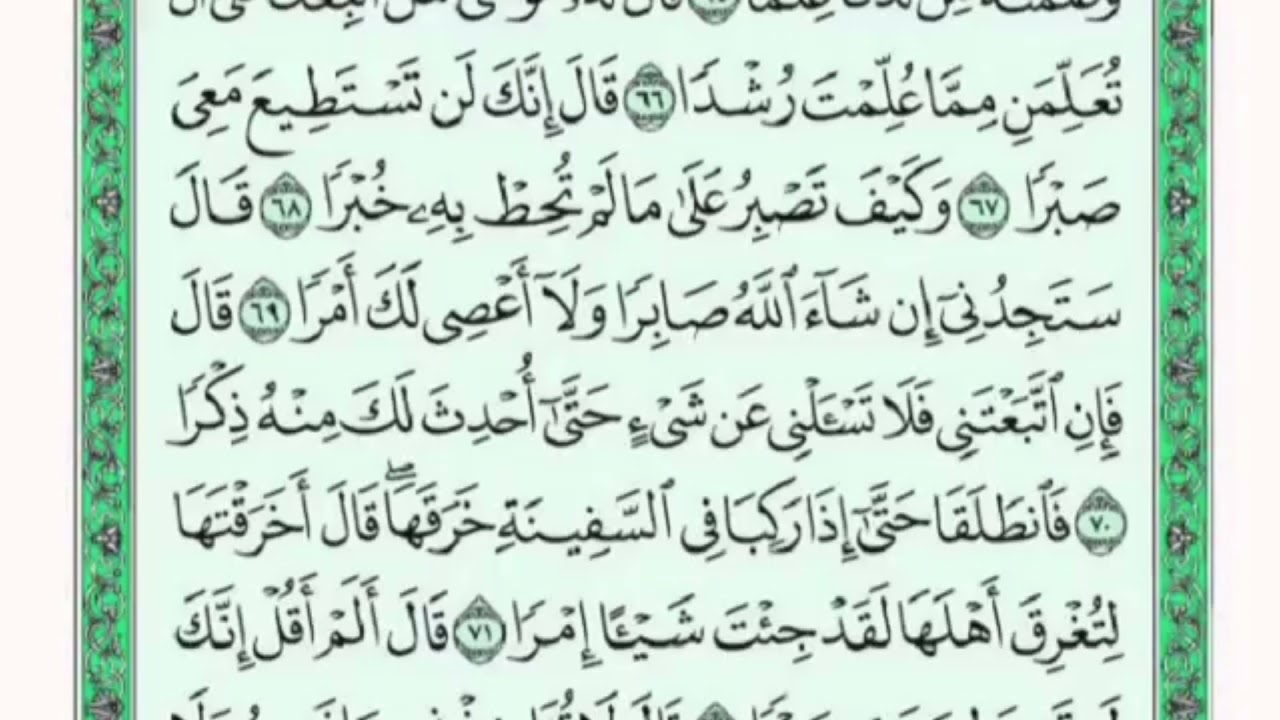 تُعَلِّمَنِ مِمَّا عُلِّمْتَ رُشْدًا ٦٦ قَالَ إِنَّكَ لَن تَسْتَطِيعَ مَعِىَ
صَبْرًا ٦٧ وَكَيْفَ تَصْبِرُ عَلَىٰ مَا لَمْ تُحِطْ بِهِۦ خُبْرًا ٦٨ قَالَ
سَتَجِدُنِىٓ إِن شَآءَ ٱللَّهُ صَابِرًا وَلَآ أَعْصِى لَكَ أَمْرًا ٦٩ قَالَ
فَإِنِ ٱتَّبَعْتَنِى فَلَا تَسْـَٔلْنِى عَن شَىْءٍ حَتَّىٰٓ أُحْدِثَ لَكَ مِنْهُ ذِكْرًا
٧٠ فَٱنطَلَقَا حَتَّىٰٓ إِذَا رَكِبَا فِى ٱلسَّفِينَةِ خَرَقَهَا ۖ قَالَ أَخَرَقْتَهَا
لِتُغْرِقَ أَهْلَهَا لَقَدْ جِئْتَ شَيْـًٔا إِمْرًا ٧١ قَالَ أَلَمْ أَقُلْ إِنَّكَ